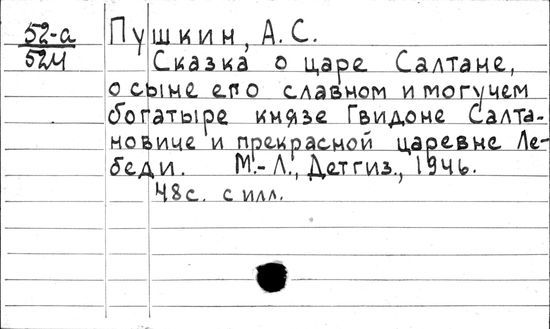 52-а
52М
Пушкин, А.С.
Сказка о царе Салтане,
о сыне его славном и могучем
богатыре князе Гвидоне Салта-
новиче и прекрасной царевне Ле-
беди. М.-Л., Детгиз., 1946.
48с. с илл.